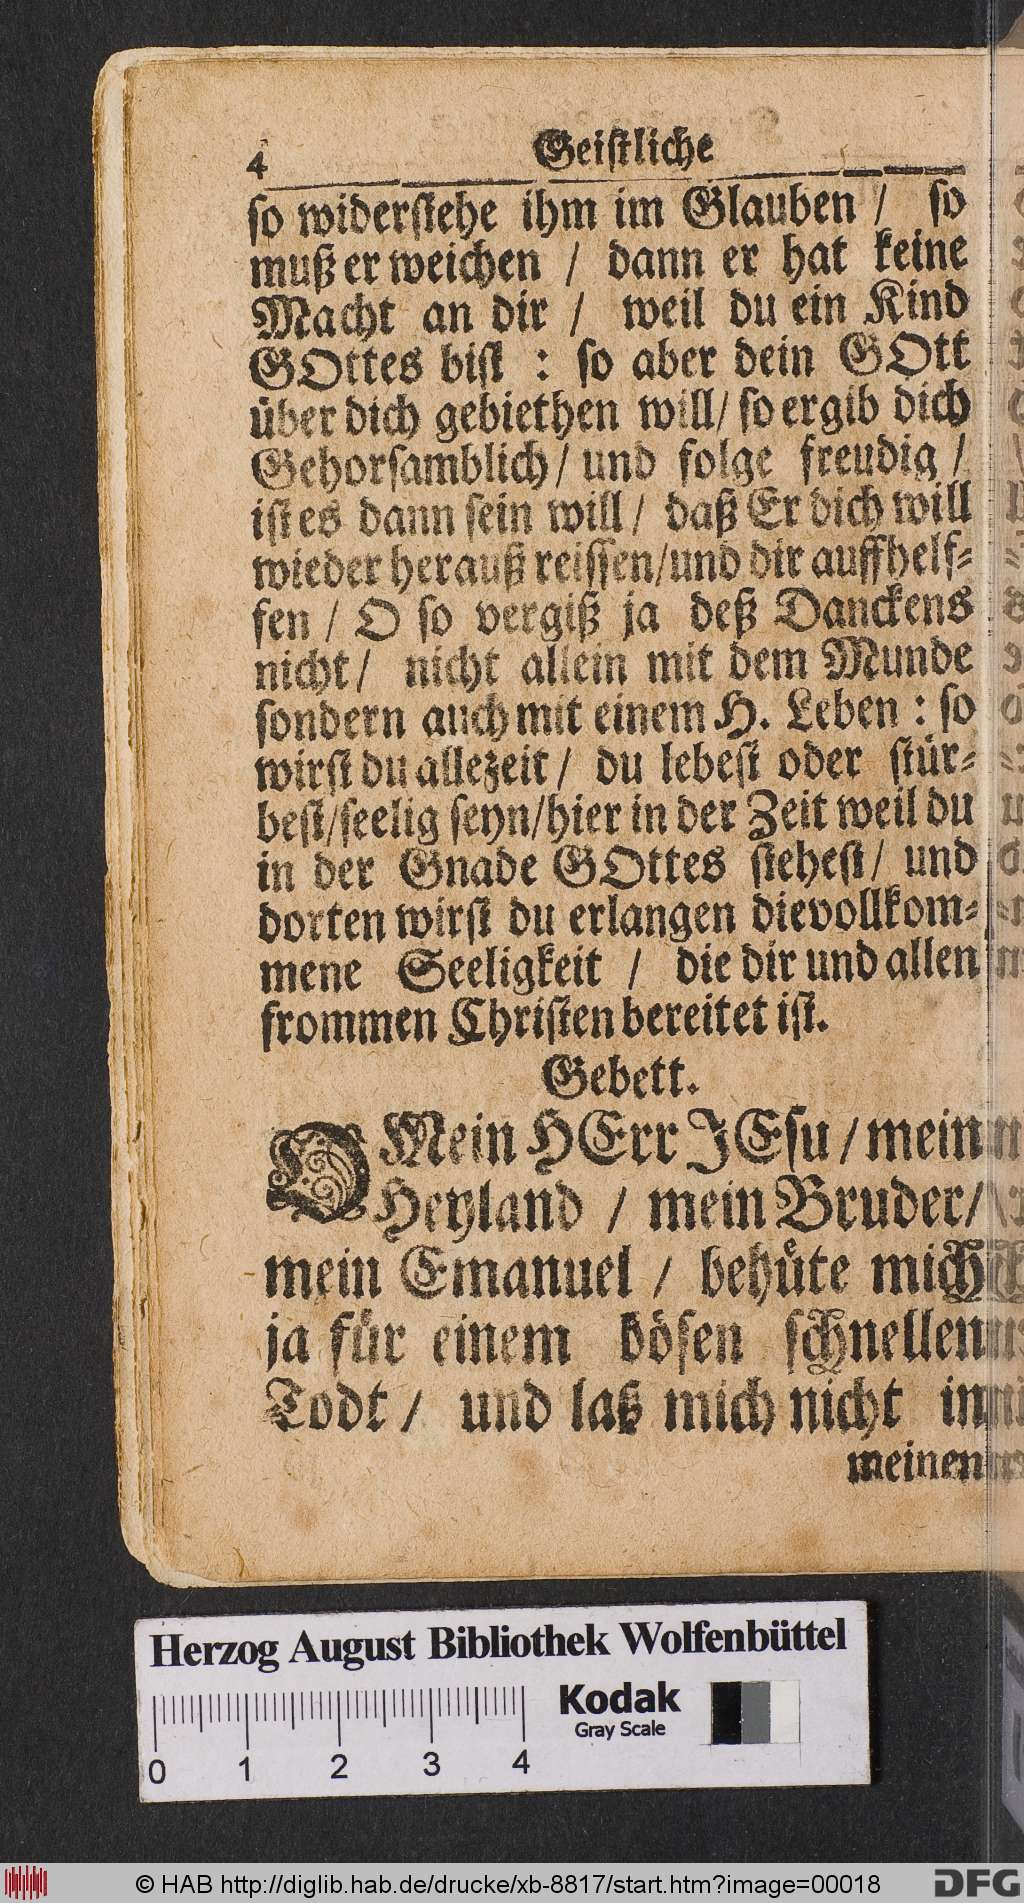 4 Geistliche
so widerstehe ihm im Glauben / so
muß er weichen / dann er hat keine
Macht an dir / weil du ein Kind
GOttes bist : so aber dein GOtt
über dich gebiethen will / so ergib dich
Gehorsamblich / und folge freudig /
ist es dann sein will / daß Er dich will
wieder herauß reissen / und dir auffhelf-
fen / O so vergiß ja deß Danckens
nicht / nicht allein mit dem Munde
sondern auch mit einem H. Leben : so
wirst du allezeit / du lebest oder stür-
best / seelig seyn / hier in der Zeit weil du
in der Gnade GOttes stehest / und
dorten wirst du erlangen die vollkom-
mene Seeligkeit / die dir und allen
frommen Christen bereitet ist.
Gebett.
O Mein HErr JEsu / mein
Heyland / mein Bruder /
mein Emanuel / behüte mich
ja für einem bösen schnellen
Todt / und laß mich nicht in
meinen
Herzog August Bibliothek Wolfenbüttel
Kodak
Gray Scale
0 1 2 3 4
© HAB http://diglib.hab.de/drucke/xb-8817/start.htm?image=00018
DFG